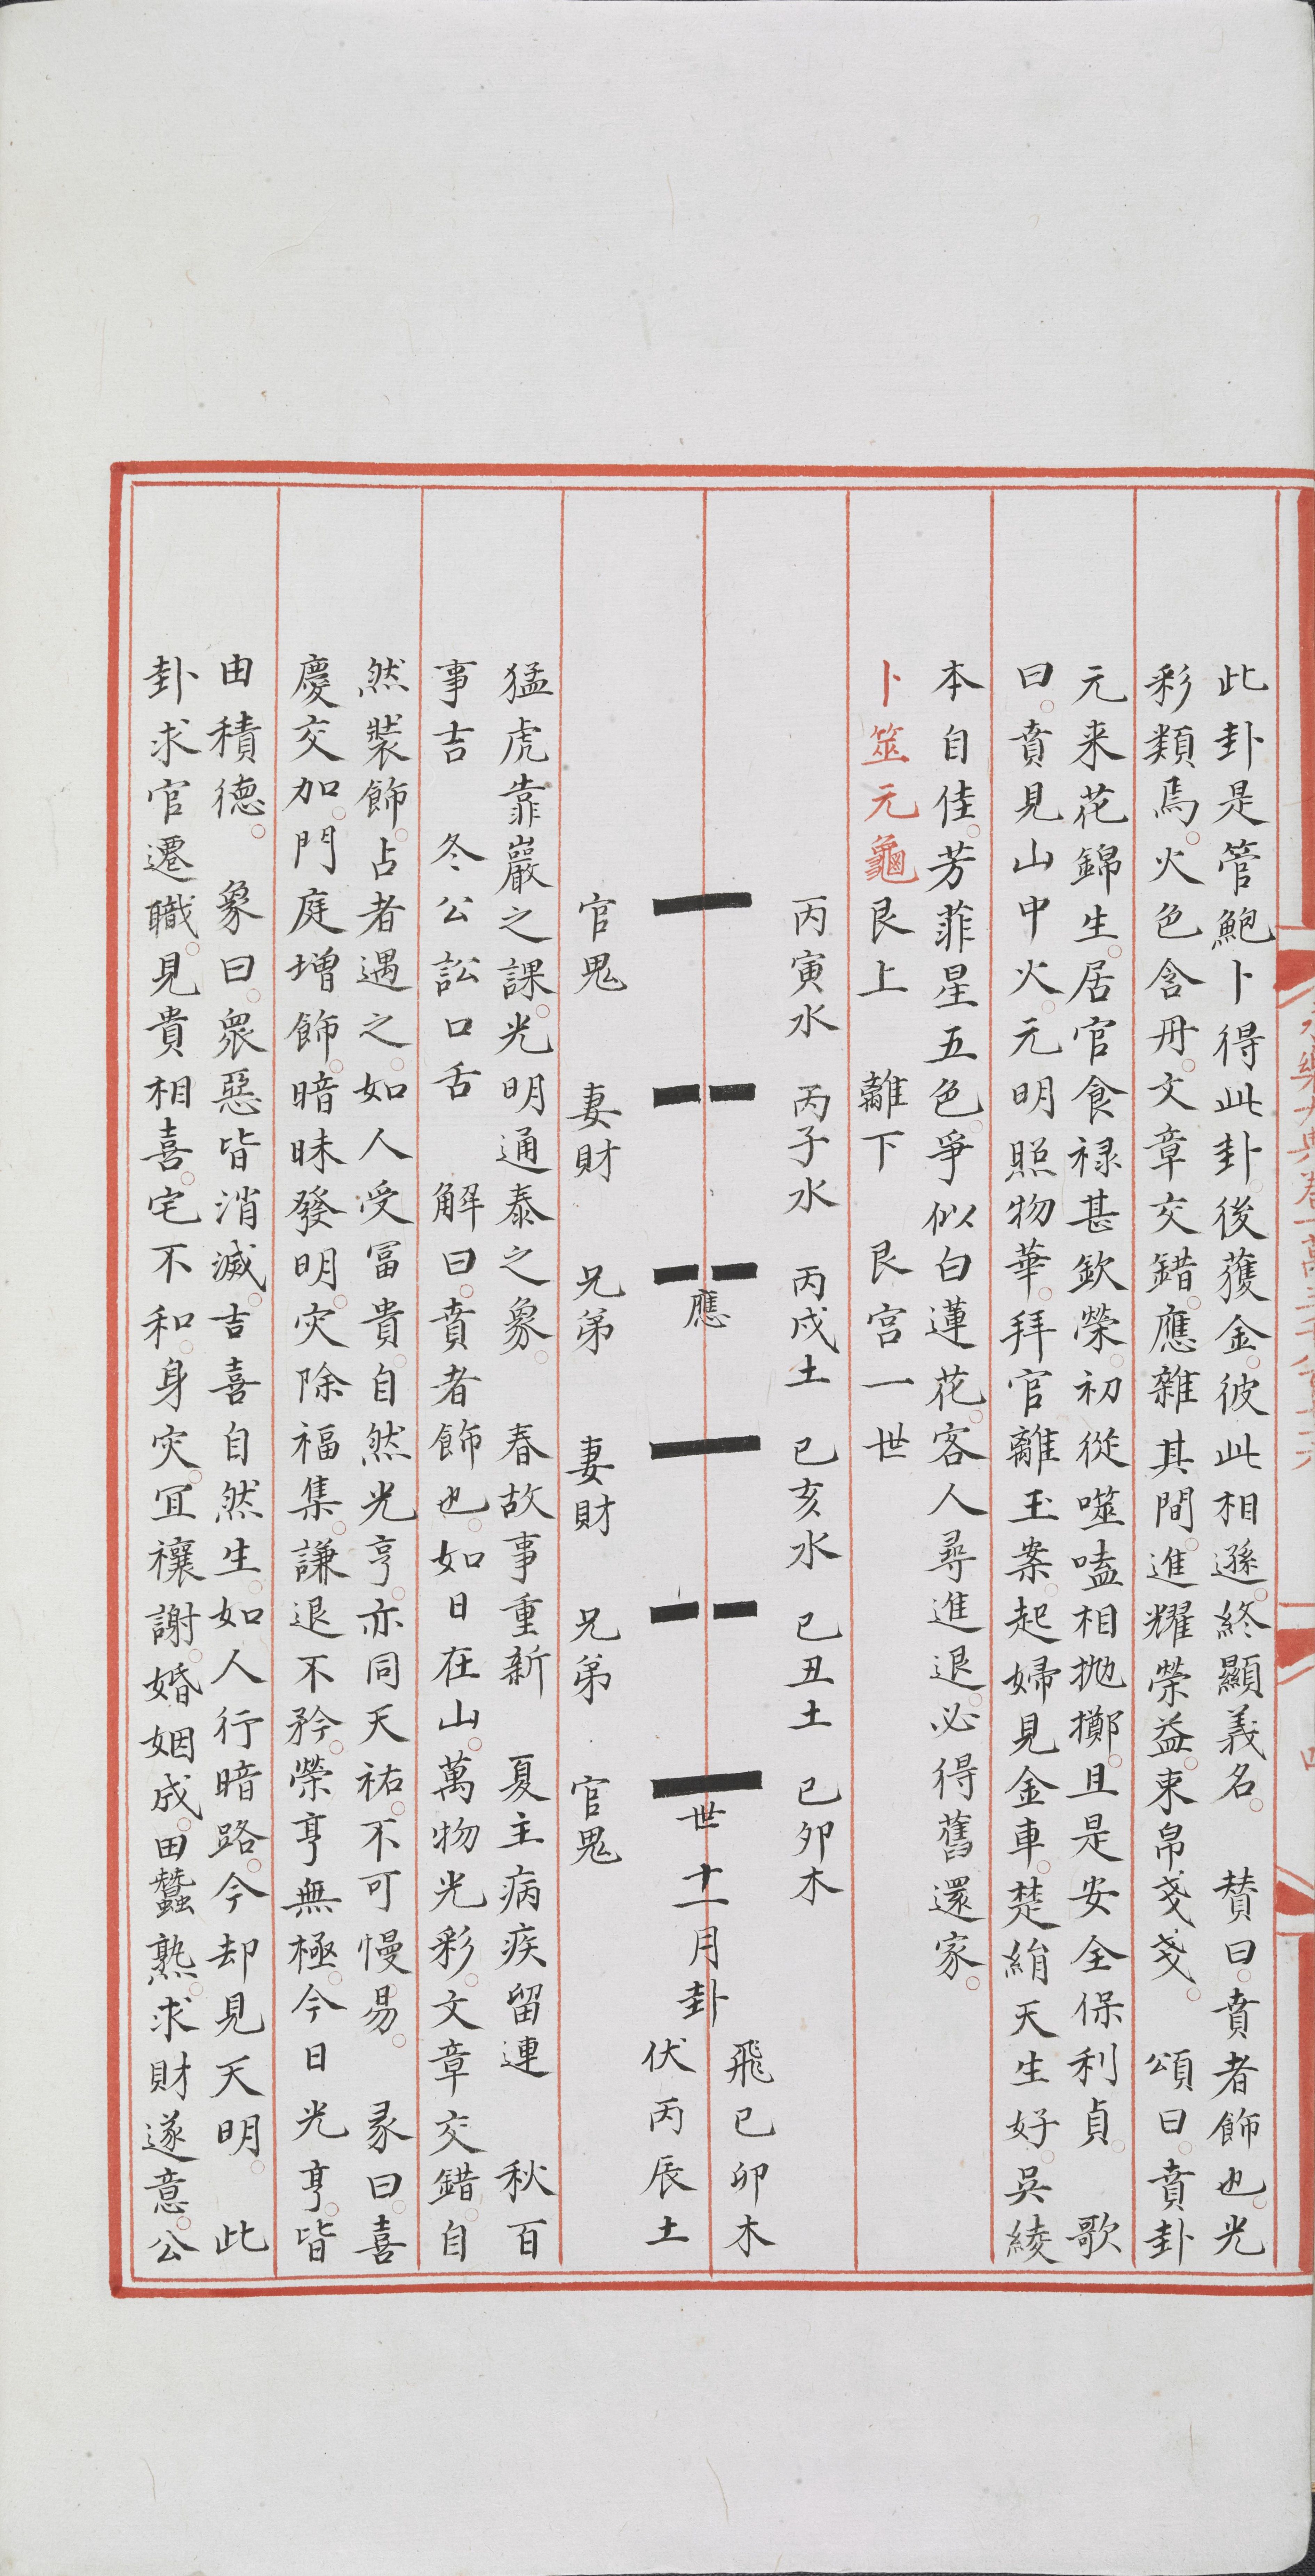 此卦是管鮑卜得此卦後獲金彼此相遜終顯義名　賛曰賁者飾也光
彩類焉火色含丹文章交錯應雜其間進耀榮益束帛戔戔　頌曰賁卦
元来花錦生居官食禄甚欽榮初從噬嗑相抛擲且是安全保利貞　歌
曰賁見山中火元明照物華拜官離玉案起婦見金車楚絹天生好吳綾
本自佳芳菲星五色爭似白蓮花客人尋進退必得舊還家
卜筮元龜　艮上　離下　艮宮一世
丙寅水　丙子水　丙戌土　已亥水　已丑土　已卯木
應　世　十一月卦
飛已卯木
伏丙辰土
官鬼　妻財　兄弟　妻財　兄弟　官鬼
猛虎靠巖之課光明通泰之象　春故事重新　夏主病疾留連　秋百
事吉　冬公訟口舌　解曰賁者飾也如日在山萬物光彩文章交錯自
然裝飾占者遇之如人受冨貴自然光亨亦同天祐不可慢易　彖曰喜
慶交加門庭增飾暗昧發明灾除福集謙退不矜榮亨無極今日光亨皆
由積德　象曰衆惡皆消滅吉喜自然生如人行暗路今却見天明　此
卦求官遷職見貴相喜宅不和身灾冝禳謝婚姻成田蠶熟求財遂意公